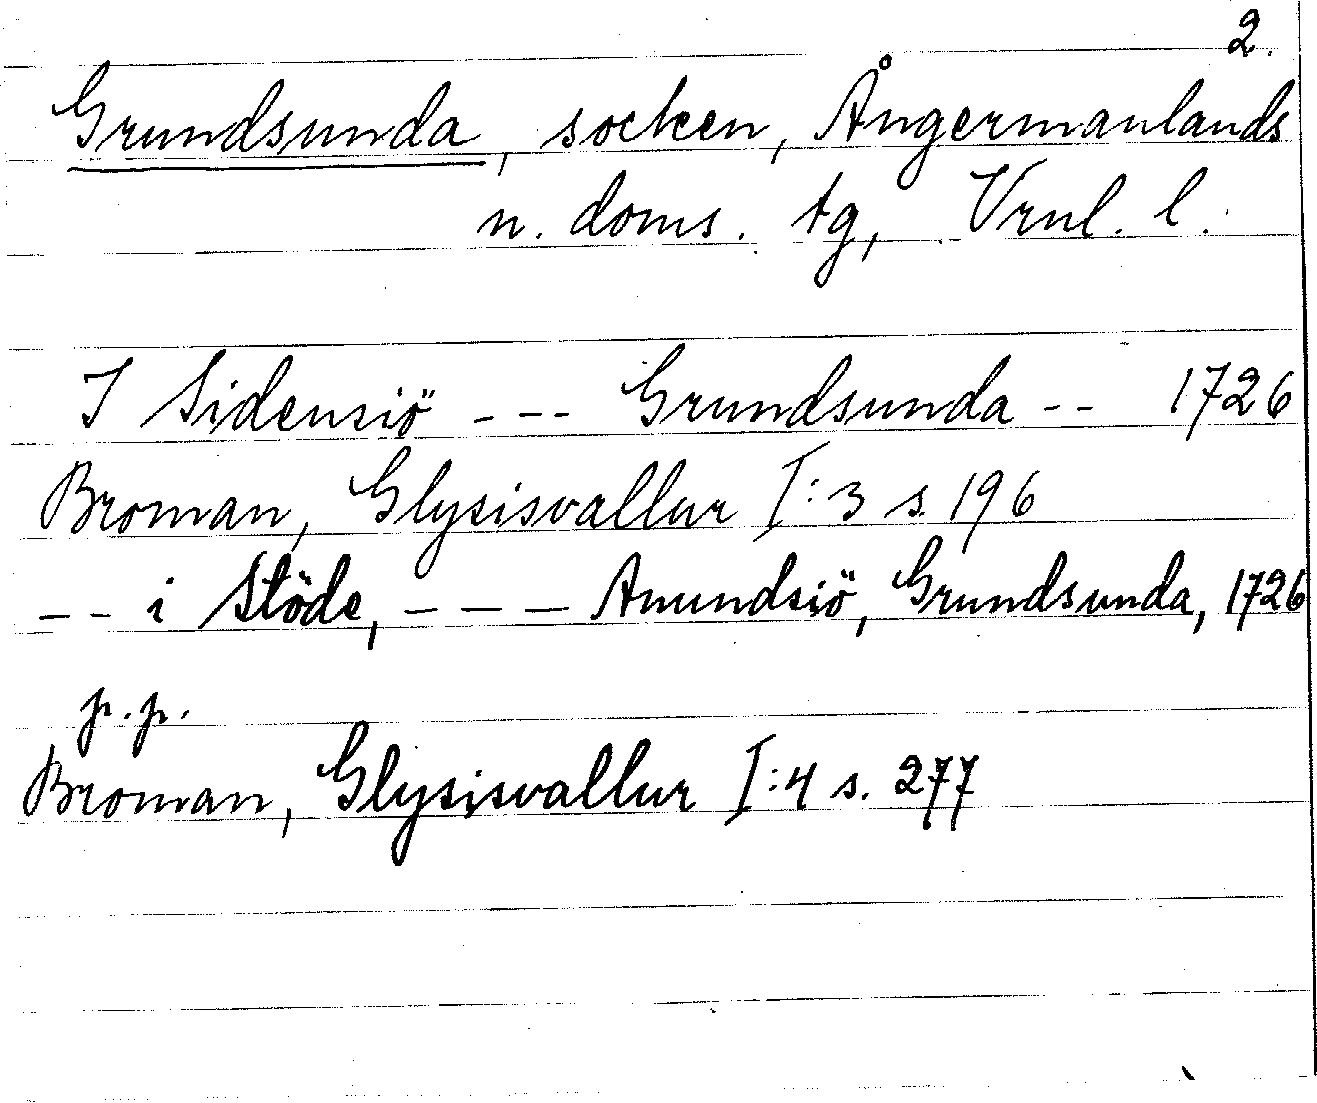 2.
Grundsunda, socken, Ångermanlands
n. doms. tg, Vrnl. l.
I Sidensiö --- Grundsunda -- 1726
Broman, Glysisvallur I:3 s. 196
-- i Stöde, --- Anundsiö, Grundsunda, 1726
p.p.
Broman, Glysisvallur I:4 s. 277